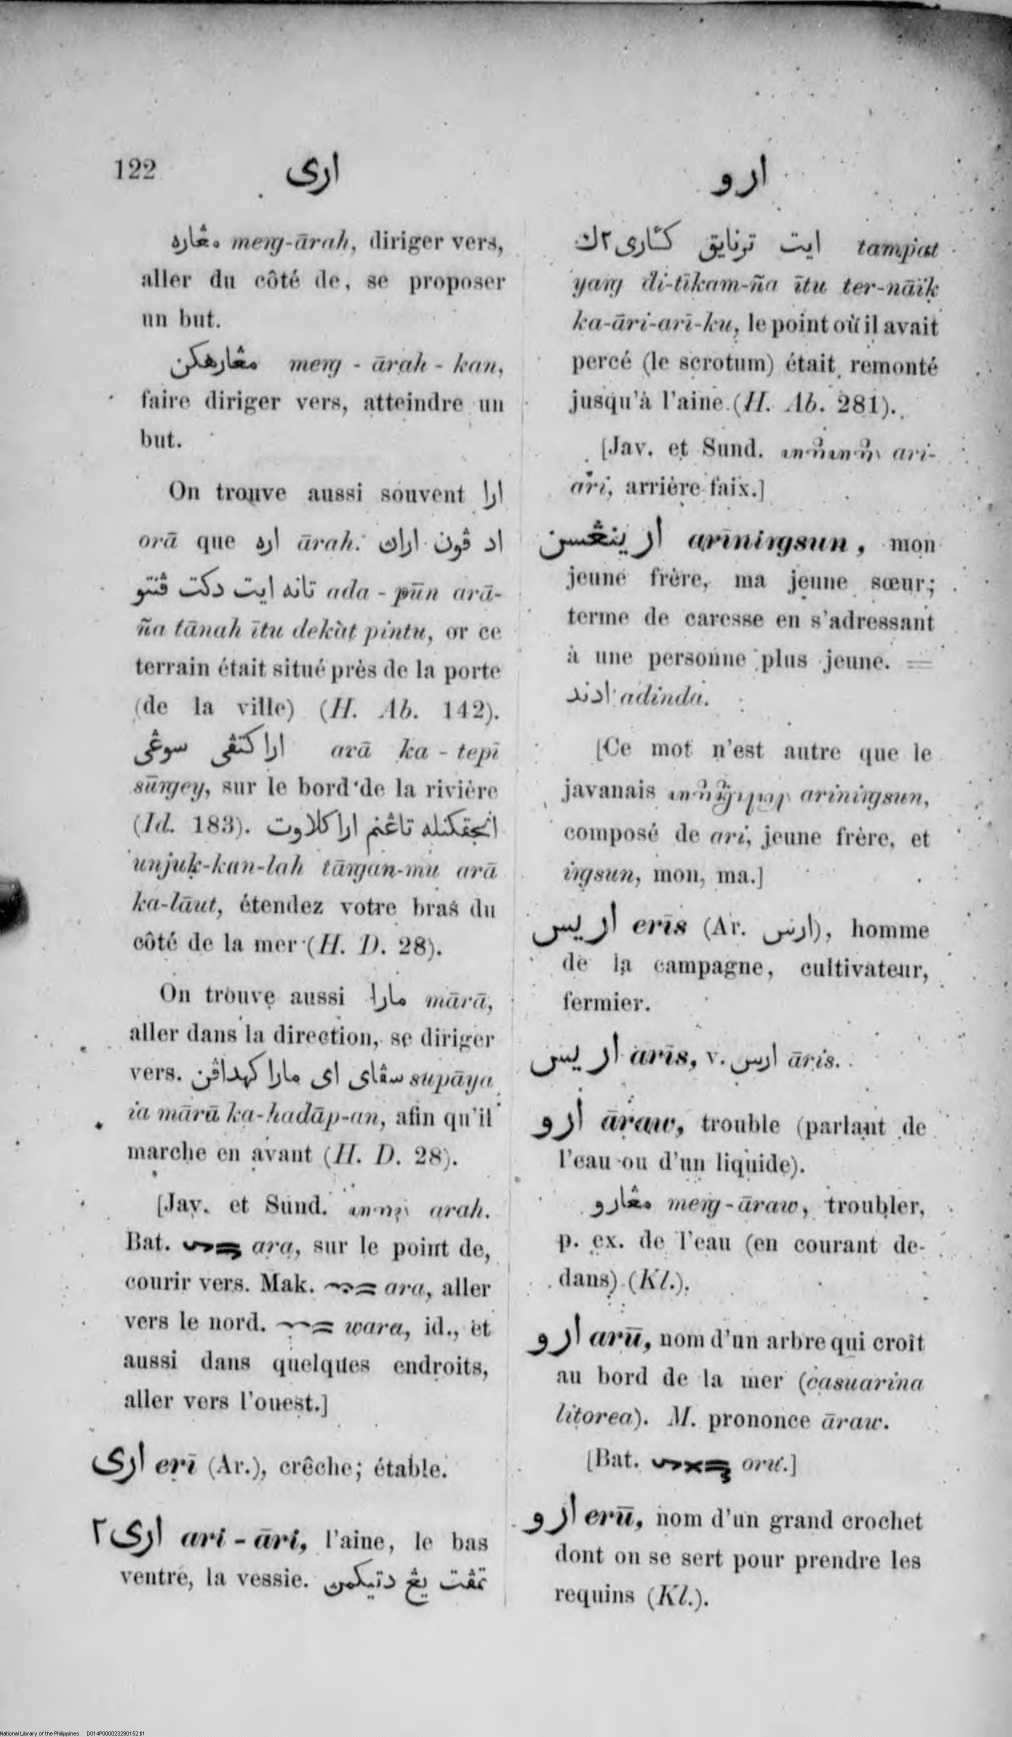 122
اری
ارو
مڠاره meṅg-ārah, diriger vers,
aller du côté de, se proposer
un but.
مڠارهکن meṅg-ārah-kan,
faire diriger vers, atteindre un
but.
On trouve aussi souvent ارا
orā que اره ārah. اد ڤون اراڽ
تانه ايت دکت ڤنتو ada-pūn arā-
ña tānah ītu dekàt pintu, or ce
terrain était situé près de la porte
(de la ville) (H. Ab. 142).
ارا کتڤی سوڠی arā ka-tepī
sūṅgey, sur le bord de la rivière
(Id. 183). انجقکنله تاڠنم اراکلاوت
unjuḳ-kan-lah tāṅgan-mu arā
ka-lāut, étendez votre bras du
côté de la mer (H. D. 28).
On trouve aussi مارا mārā,
aller dans la direction, se diriger
vers. سڤای ای مارا کهداڤن supāya
ia mārā ka-hadāp-an, afin qu'il
marche en avant (H. D. 28).
[Jav. et Sund. arah.
Bat. ara, sur le point de,
courir vers. Mak. ara, aller
vers le nord. wara, id., et
aussi dans quelques endroits,
aller vers l'ouest.]
اری erī (Ar.), crêche; étable.
اری٢ ari-āri, l'aine, le bas
ventre, la vessie. تمڤت يڠ دتيکمڽ
ايت ترنايق کئاری٢ک tampat
yaṅg di-tīkam-ña ītu ter-nāïḳ
ka-āri-arī-ku, le point où il avait
percé (le scrotum) était remonté
jusqu'à l'aine (H. Ab. 281).
[Jav. et Sund. ari-
ari, arrière faix.]
ارينڠسن arīniṅgsun, mon
jeune frère, ma jeune sœur;
terme de caresse en s'adressant
à une personne plus jeune. =
ادند adinda.
[Ce mot n'est autre que le
javanais ariniṅgsun,
composé de ari, jeune frère, et
iṅgsun, mon, ma.]
اريس erīs (Ar. ارس), homme
de la campagne, cultivateur,
fermier.
اريس arīs, v. ارس āris.
ارو āraw, trouble (parlant de
l'eau ou d'un liquide).
مڠارو meṅg-āraw, troubler,
p. ex. de l'eau (en courant de-
dans) (Kl.).
ارو arū, nom d'un arbre qui croît
au bord de la mer (casuarina
litorea). M. prononce āraw.
[Bat. oru.]
ارو erū, nom d'un grand crochet
dont on se sert pour prendre les
requins (Kl.).
National Library of the Philippines